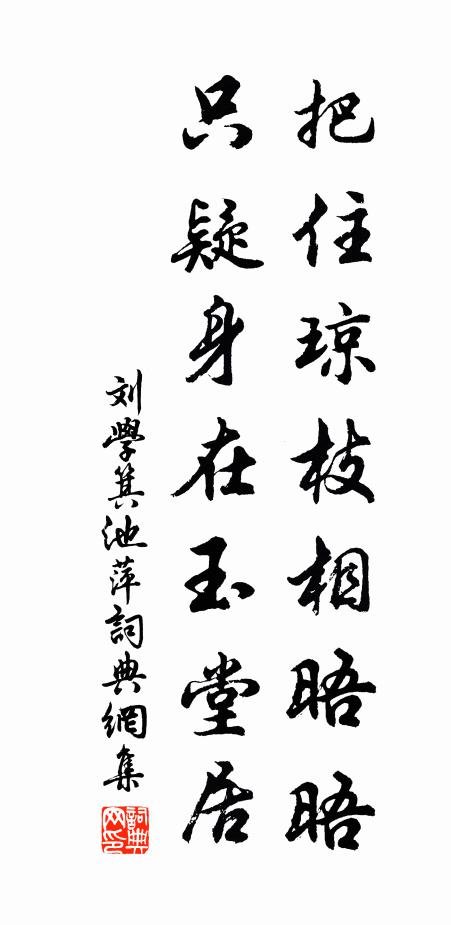 把住琼枝相晤晤
只疑身在玉堂居
刘學箕池萍詞典網集
詞典網印